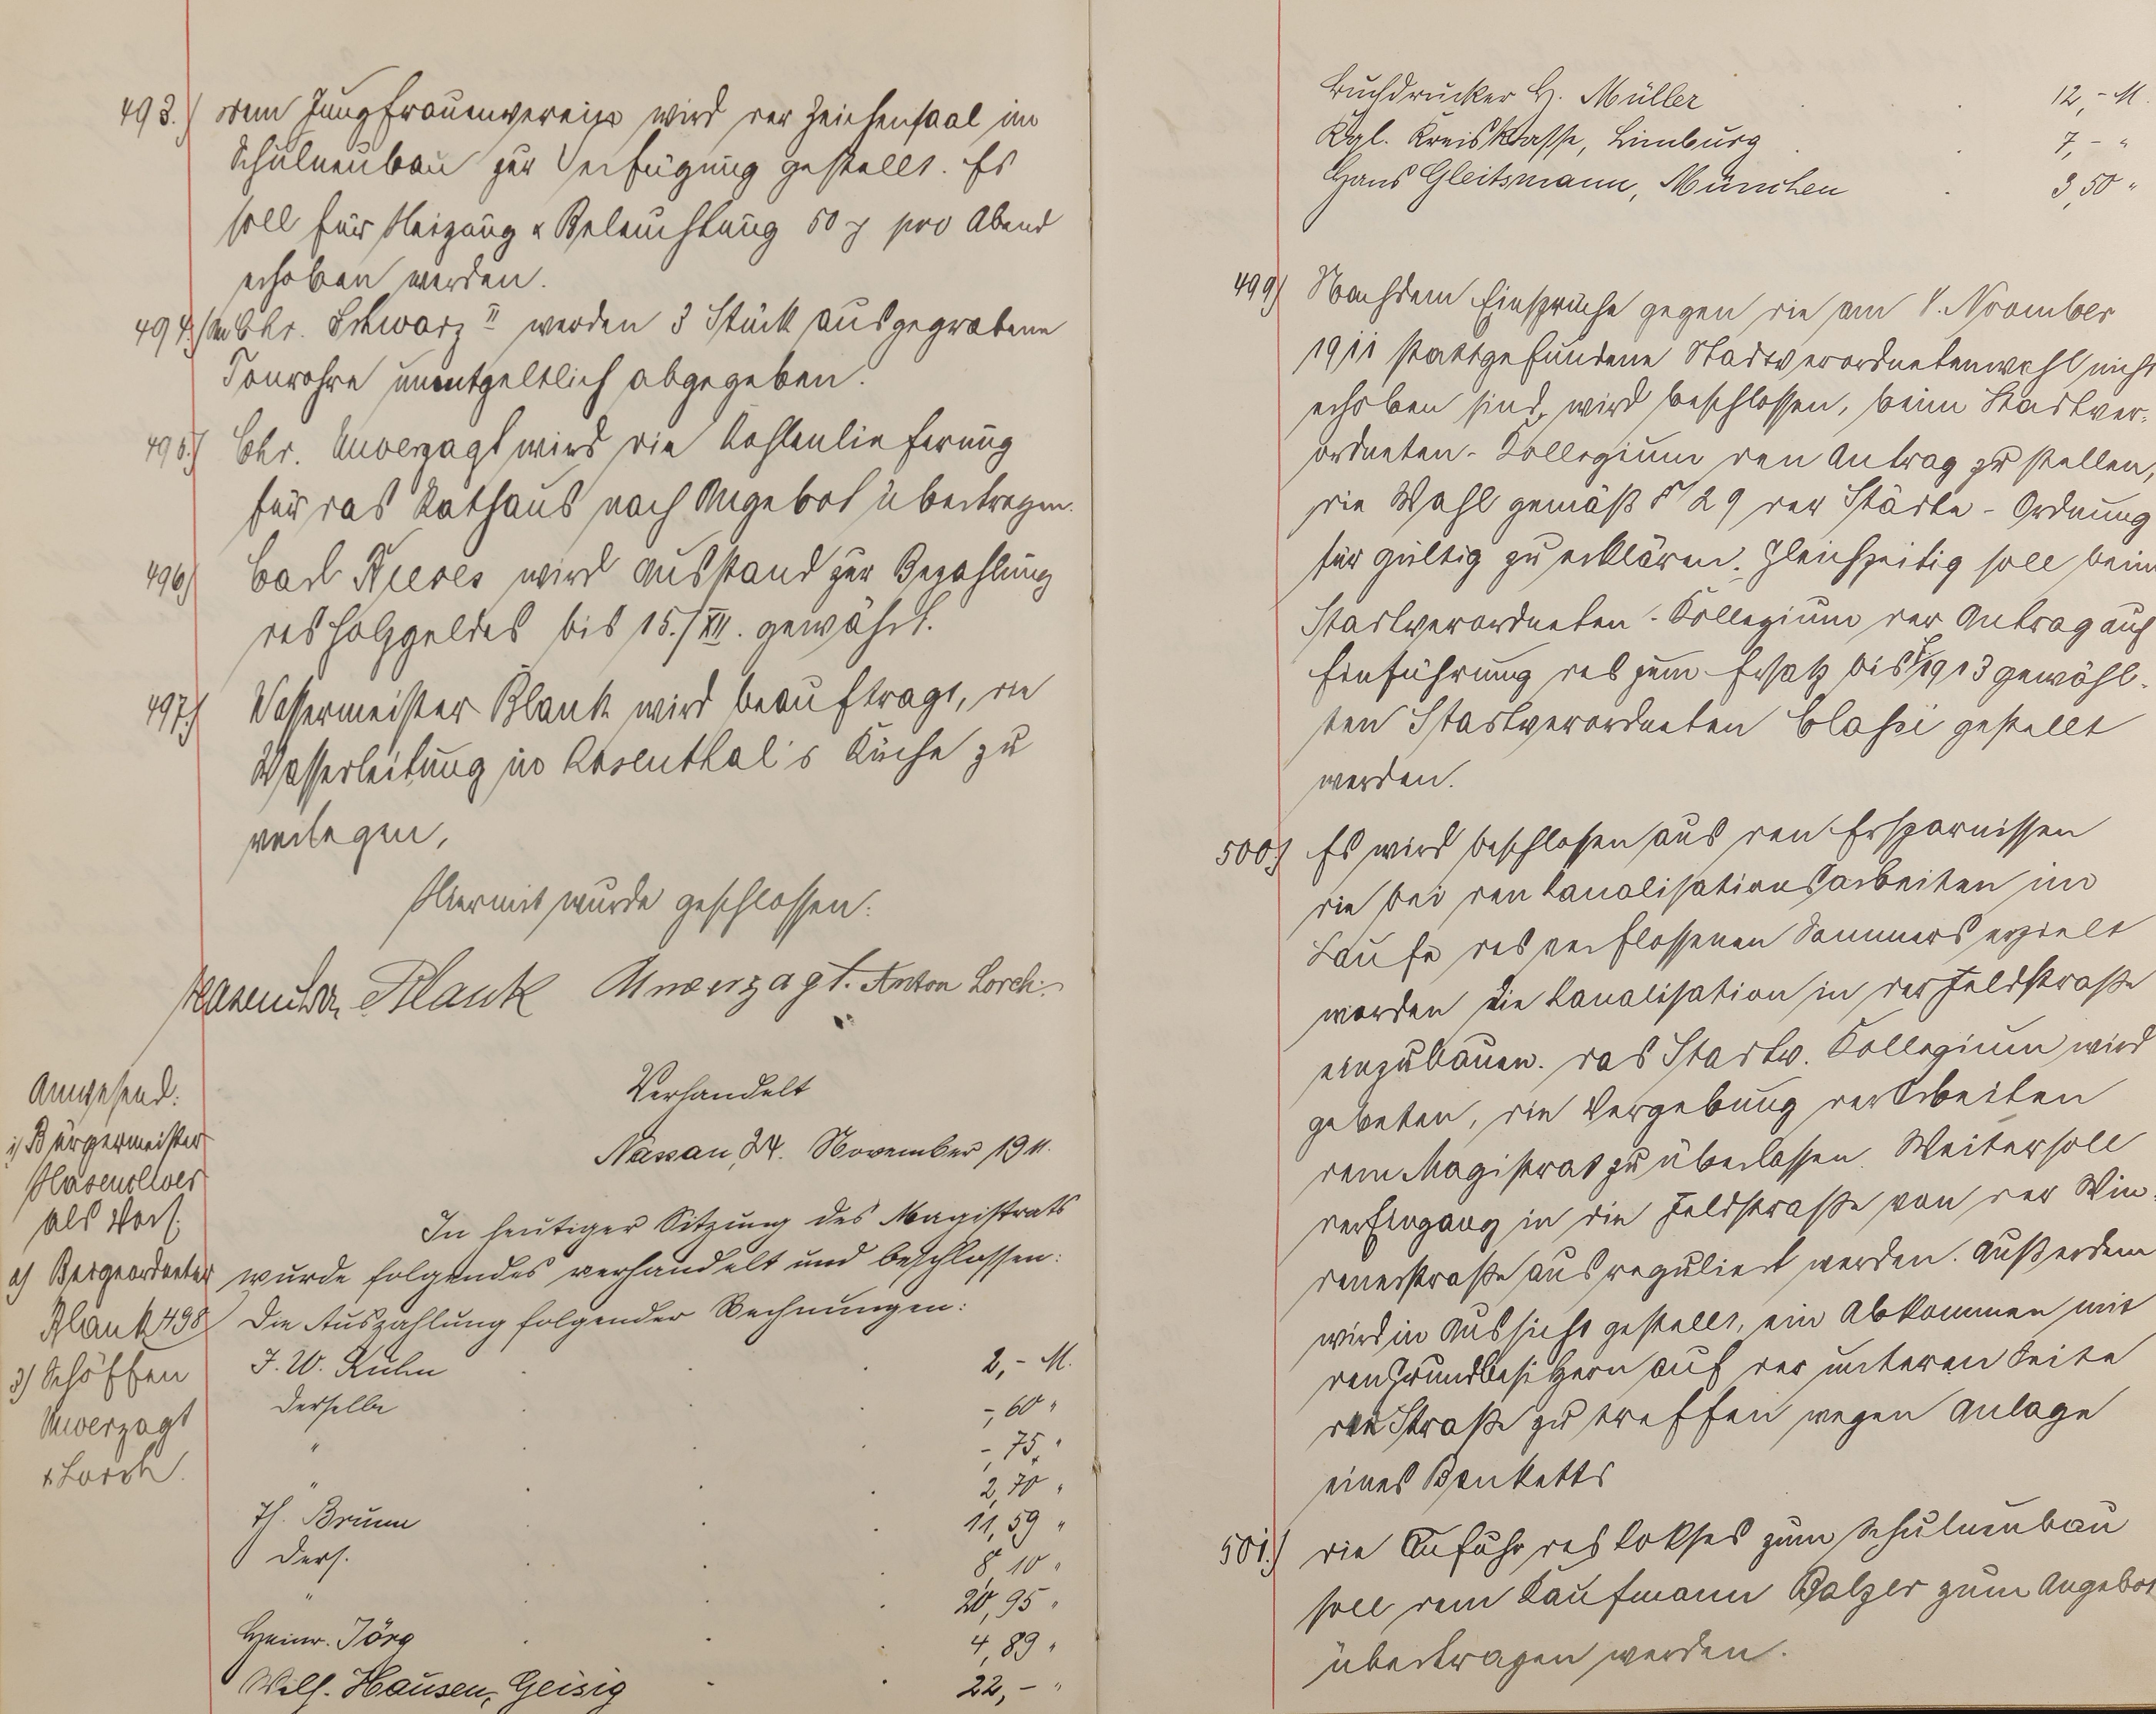 493.) Dem Jungfrauenverein wird der Zeichensaal im
Schulneubau zur Verfügung gestellt. Es
soll für Heizung & Beleuchtung 50 ₰ pro Abend
erhoben werden.
494.) An Chr. Schwarz II werden 3 Stück ausgegrabene
Tonrohre unentgeltlich abgegeben.
495.) Chr. Unverzagt wird die Kohlenlieferung
für das Rathaus nach Angebot übertragen.
496.) Carl wird Ausstand zur Bezahlung
des Holzgeldes bis 15./XII. gewährt.
497.) Wassermeister Blank wird beauftragt, die
Wasserleitung in Rosenthal's Küche zu
verlegen,
Hiermit wurde geschlossen:
Hasenclever Blank Unverzagt. Anton Lorch.
Verhandelt
Nassau, 24. November 1911.
Anwesend:
1) Bürgermeister
Hasenclever
als Vors.
2) Beigeordneter
Blank
3) Schöffen
Unverzagt
& Lorch.
In heutiger Sitzung des Magistrats
wurde folgendes verhandelt und beschlossen:
498) Die Auszahlung folgender Rechnungen:
J. W. Kuhn 2,- M.
derselbe -,60 "
" -,75 "
" 2,70 "
Th. Brunn 11,59 "
ders. 8,10 "
" 20,95 "
Heinr. Jörg 4,89 "
Wilh. Hausen, Geisig 22,- "
Buchdrucker H. Müller 12,- M.
Kgl. Kreiskasse, Limburg 7,- "
Hans Gleitsmann, München 3,50 "
499) Nachdem Einsprüche gegen die am 8. November
1911 stattgefundene Stadtverordnetenwahl nicht
erhoben sind, wird beschlossen, beim Stadtver-
ordneten-Kollegium den Antrag zu stellen,
die Wahl gemäß § 29 der Städte-Ordnung
für gültig zu erklären. Gleichzeitig soll beim
Stadtverordneten-Kollegium der Antrag auf
Einführung des zum Ersatz bis 1913 gewähl-
ten Stadtverordneten gestellt
werden.
500.) Es wird beschlossen aus den Ersparnissen
die bei den Kanalisationsarbeiten im
Laufe des verflossenen Sommers erzielt
worden die Kanalisation in der Feldstraße
einzubauen. Das Stadtv. Kollegium wird
gebeten, die Vergebung der Arbeiten
dem Magistrat zu überlassen. Weiter soll
der Eingang in die Feldstraße von der Win-
denerstraße aus reguliert werden. Außerdem
wird in Aussicht gestellt, ein Abkommen mit
den Grundbesitzern auf der unteren Seite
der Straße zu treffen wegen Anlage
eines Banketts
501.) Die Anfuhr des Kokses zum Schulneubau
soll dem Kaufmann Balzer zum Angebot
übertragen werden.